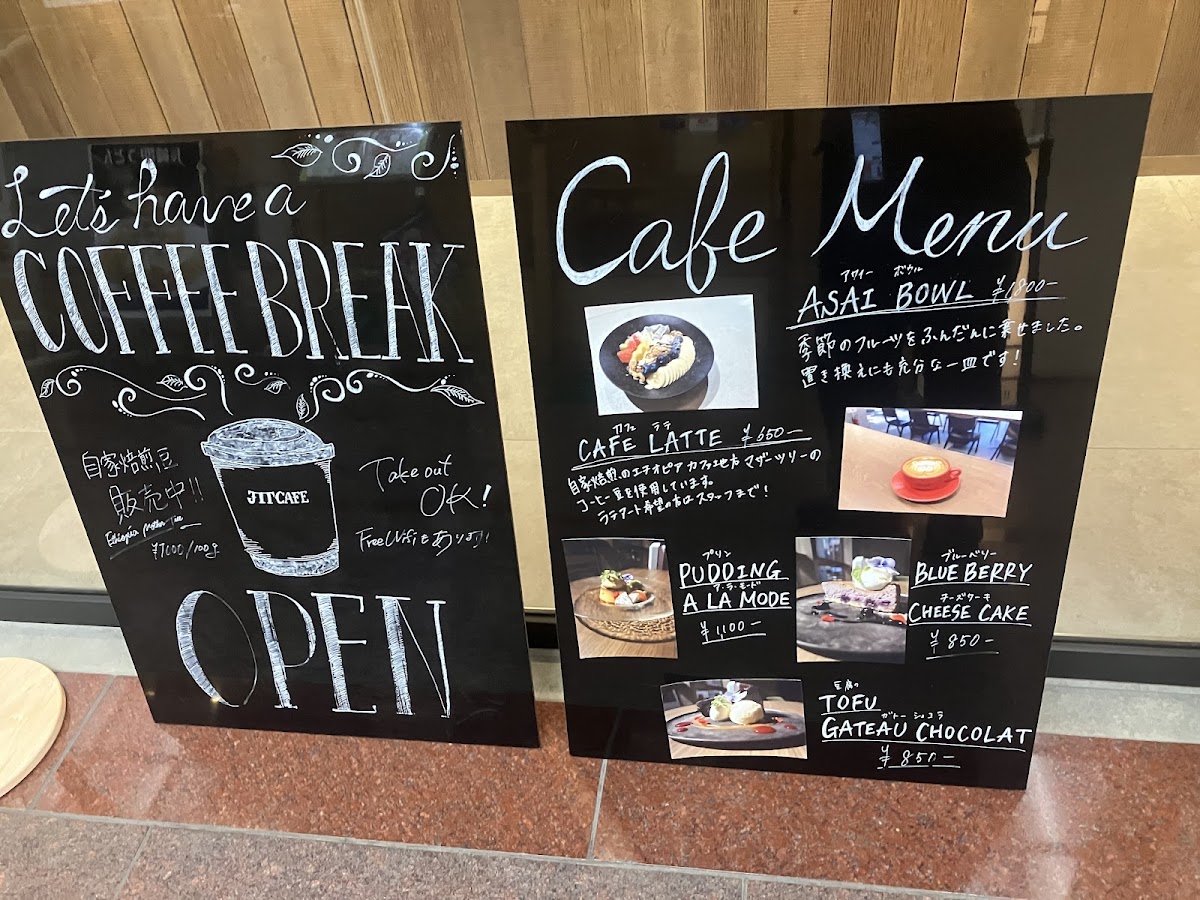 Let's have a
COFFEE BREAK
自家焙煎豆
販売中!!
Ethiopia Mother Tree
JITCAFE
Take out
OK!
Free Wifiもあります!
OPEN
Cafe Menu
アサイー ボウル
ASAI BOWL ¥1800-
季節のフルーツをふんだんに乗せました。
置き換えにも充分な一皿です!
カフェ ラテ
CAFE LATTE ¥650-
自家焙煎のエチオピア カファ地方 マザーツリーの
コーヒー豆を使用しています。
ラテアート希望の方はスタッフまで!
プリン
PUDDING
ア・ラ・モード
A LA MODE
¥1,100-
ブルーベリー
BLUE BERRY
チーズケーキ
CHEESE CAKE
¥850-
豆腐の
TOFU
ガトー ショコラ
GATEAU CHOCOLAT
¥850-